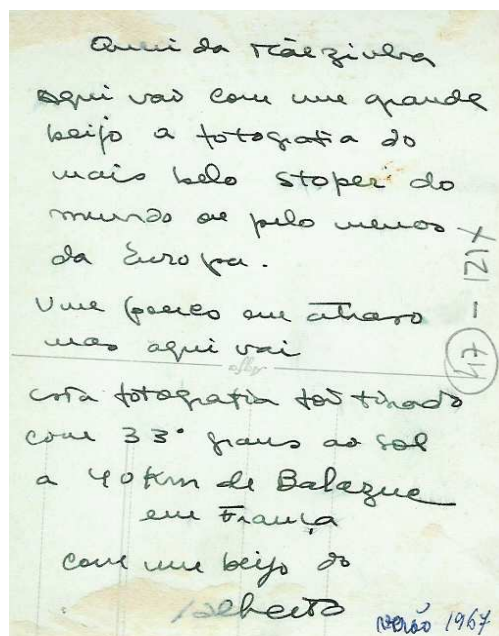 Querida Mãezinha
aqui vai com um grande
beijo a fotografia do
mais belo stoper do
mundo ou pelo menos
da Europa.
Um pouco em atraso
mas aqui vai
esta fotografia foi tirada
com 33° graus ao sol
a 40 Km de Balazuc
em França
com um beijo do
Alberto
verão 1967